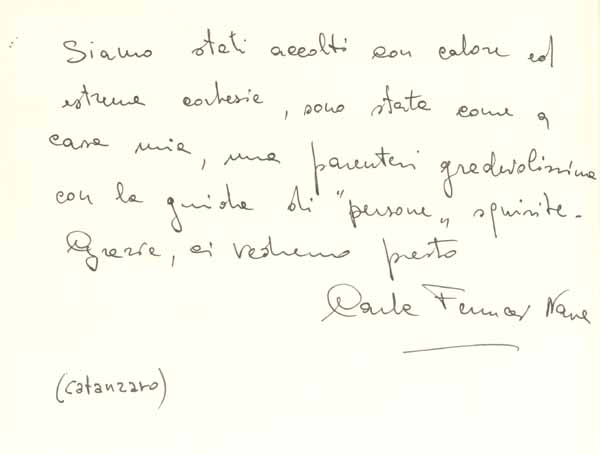 Siamo stati accolti con calore ed
estrema cortesia, sono stata come a
casa mia, una parentesi gradevolissima
con la guida di "persone" squisite.
Grazie, ci vedremo presto
Carla
(Catanzaro)